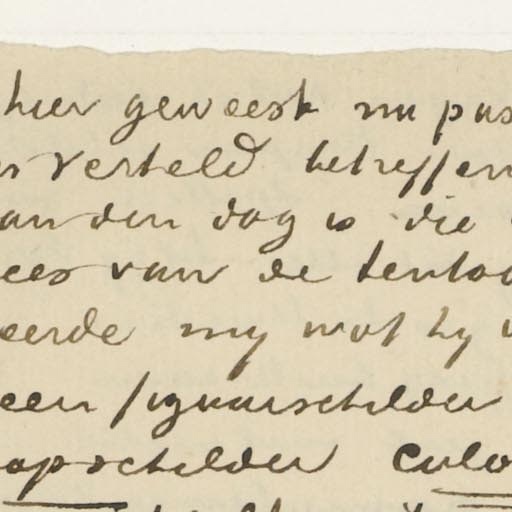 hier geweest nu pas
verteld betreffen
van den dag is die
ees van de tentoo
eerde my wat hy
een figuurschilder
apschilder colo